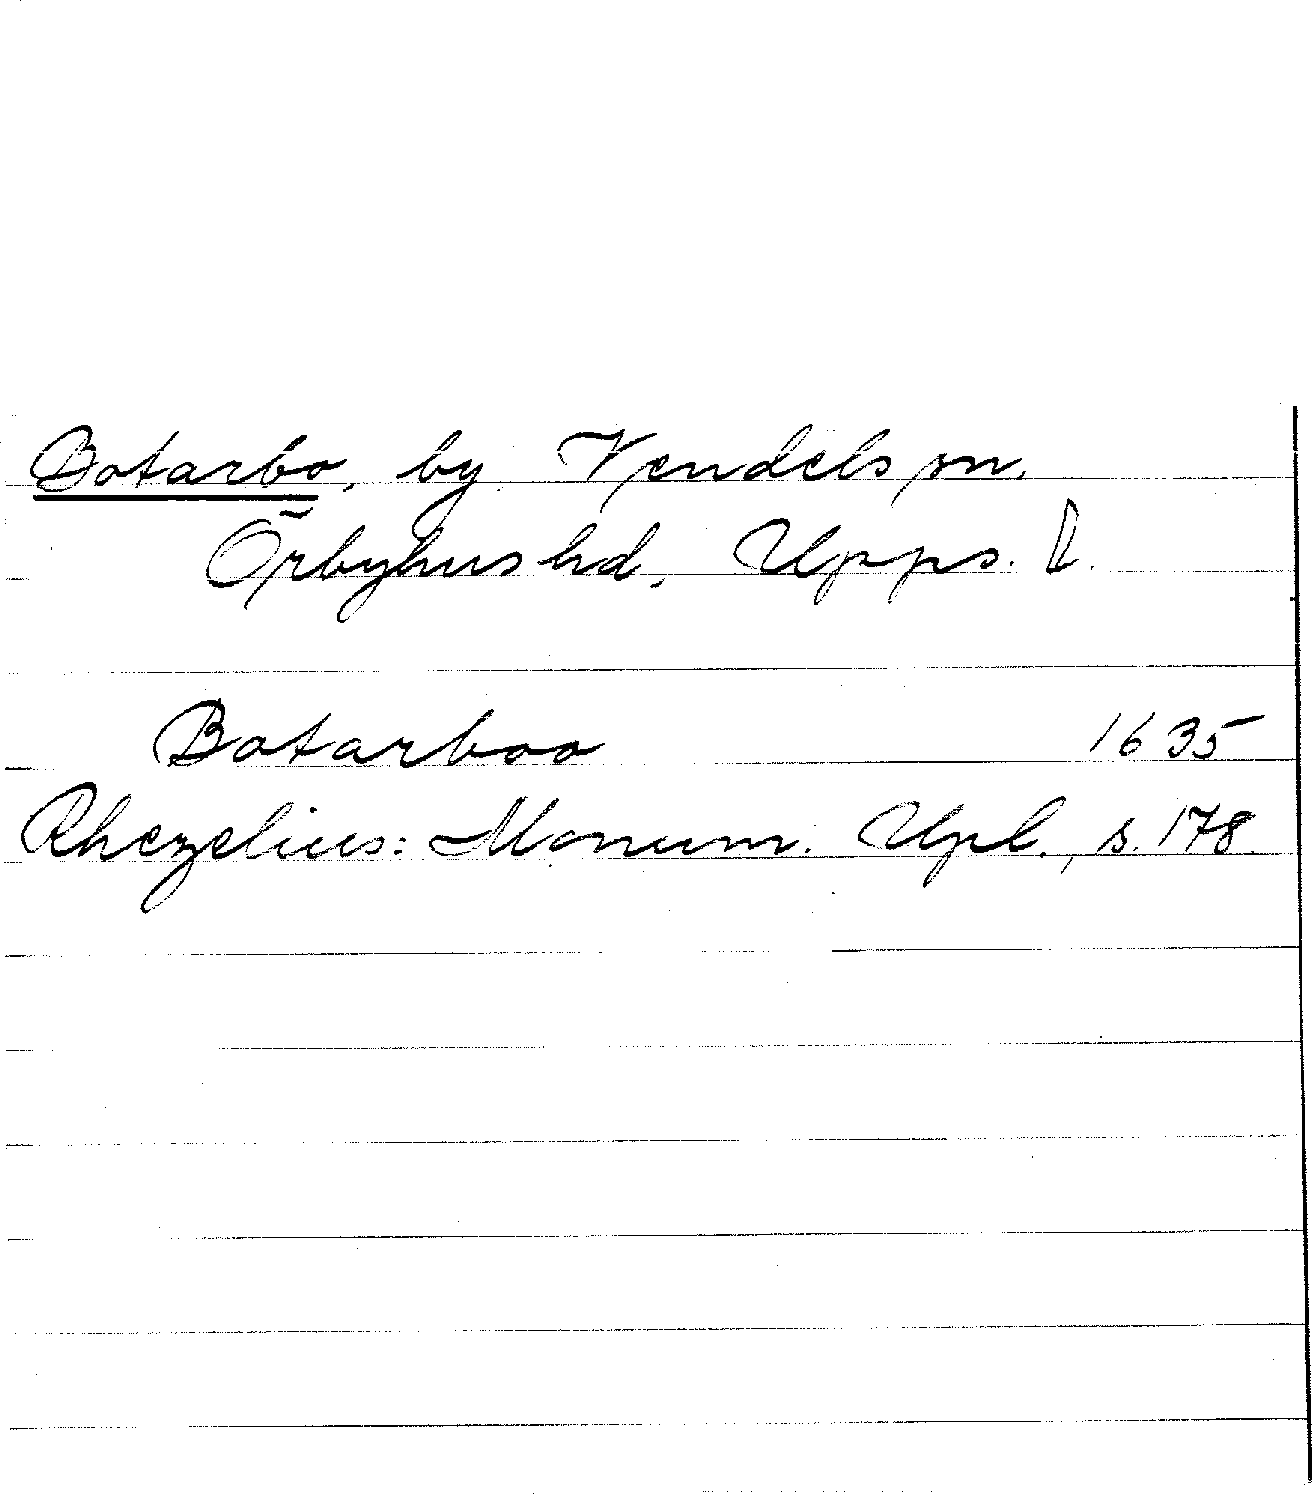 Botarbo, by Vendels sn.
Örbyhus hd, Upps. l.
Botarboo 1635
Rhezelius: Monum. Upl., s. 178.